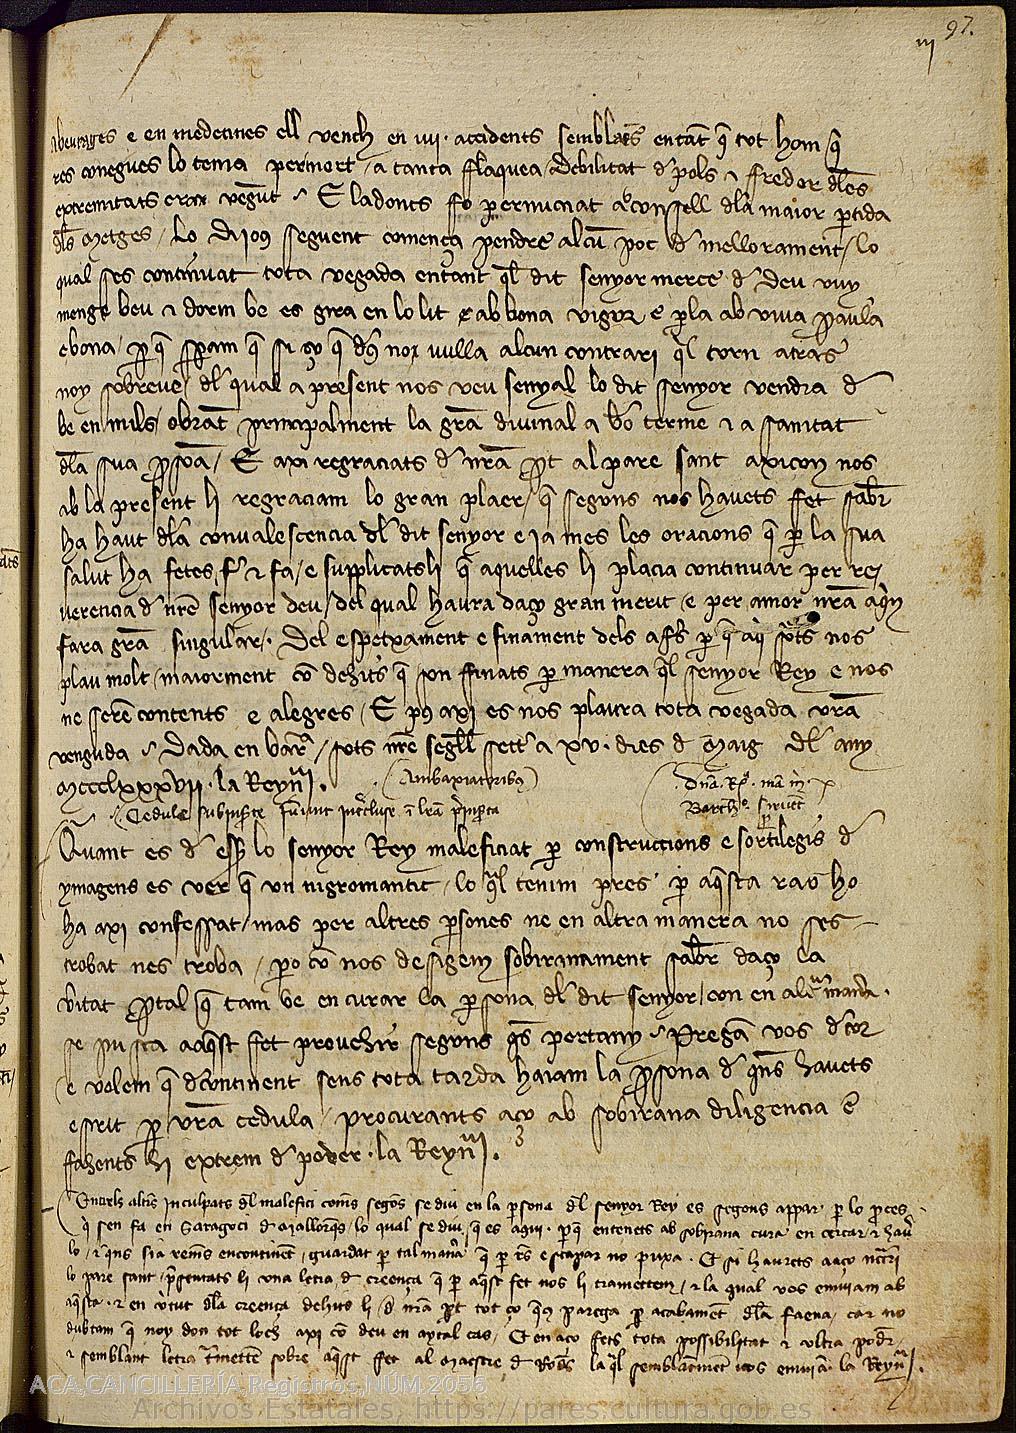 97.
iij
abeuratges e en medecines ell vench en iiii. accidents semblants entat q tot hom q
res conegues lo tenia per mort / a tanta flaquea / debilitat d pols & fredor dles
extremitats eran vengut E ladonts fo pernunciat a consell dla maior ptida
dls Metges / Lo Dijous seguent comença pendre alcu poc d mellorament / lo
qual ses continuat tota vegada entant ql dit senyor merce d deu vuy
menge beu & dorm be es gira en lo lit e ab bona vigor e pla ab viva paula
e bona / p q speram q si ço q ds no vulla alcun contrari ql torn atras
noy sobreve / dl qual a present nos veu senyal lo dit senyor vendra d
be en mils / obrat principalment la gra divinal a bo terme & a sanitat
dla sua psona / E axi regraciats d nra pt al pare sant axi con nos
ab la present li regraciam lo gran plaer / q segons nos havets fet saber
ha haut dla convalescencia dl dit senyor e ja mes les oracions q p la sua
salut ha fetes fer & fa / e supplicats li q aquelles li placia continuar per re
verencia d nre senyor deu / del qual haura daço gran merit e per amor nra aqn
fara gra singular. Del espetxament e finament dels affers p q aq sots nos
plau molt / maiorment co dehits q son finats p manera ql senyor Rey e nos
ne serem contents e alegres / E pus axi es nos plaura tota vegada vra
venguda Dada en barna / sots nre segell secret a xv. dies d Maig dl any
Mccclxxxvii. la Reyna.
(Ambaxiatoribus)
Dna. Ra. ma m.
Barth. sirvent
Cedule subinserte fuerunt intercluse i lra pinserta
Quant es d esser lo senyor Rey maleficiat p construccions e sortilegis d
ymagens es ver q un nigromantic / lo ql tenim pres p aqsta rao ho
ha axi confessat / mas per altres psones ne en altra manera no ses
trobat nes troba / po co nos desigem sobiranament saber daço la
vitat p tal q tam be en curar la psona dl dit senyor / con en alt manera.
se pusca aaqst fet provehir segons qs pertany Pregam vos d cor
e volem q dcontinent sens tota tarda haiam la psona d qns havets
escrit p vra cedula / procurants aço ab sobirana diligencia e
fahents hi extrem d poder. la Reyna.
Entrels altres inculpats dl malefici comes segons se diu en la psona dl senyor Rey es segons appar p lo proces
q sen fa en Saragoci d Mallorqs / lo qual se diu q es aqui. pq entenets ab sobirana cura en cercar & haver
lo / & qns sia remes encontinent / guardat p tal manera q p res escapar no puxa. E si havets aaço necessari
lo pare sant / psentats li una letra d creença q p aqst fet nos li trametem / & la qual vos enviam ab
aqsta. & en virtut dla creença dehits li d nra pt tot ço qus parega p acabament dla faena / car no
dubtam q noy don tot loch axi co deu en aytal cas / E en aço fets tota possibilitat & ultra poder /
& semblant letra trametem sobre aqst fet al Maestre d Rodes la ql semblantment vos enviam. la Reyna.
ACA,CANCILLERÍA,Registros,NÚM.2056
Archivos Estatales, https://pares.cultura.gob.es